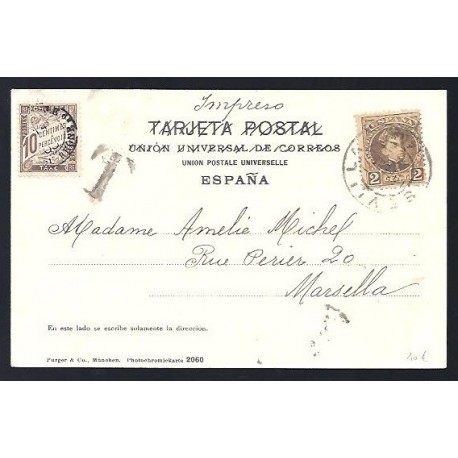 Impreso
TARJETA POSTAL
UNIÓN UNIVERSAL DE CORREOS
UNION POSTALE UNIVERSELLE
ESPAÑA
10
CENTIMES
À PERCEVOIR
TAXE
T
2 2
SEVILLA
Madame Amelie Michel
Rue Perier 20
Marsella
En este lado se escribe solamente la dirección.
Purger & Co., München. Photochromiekarte 2060
40 €